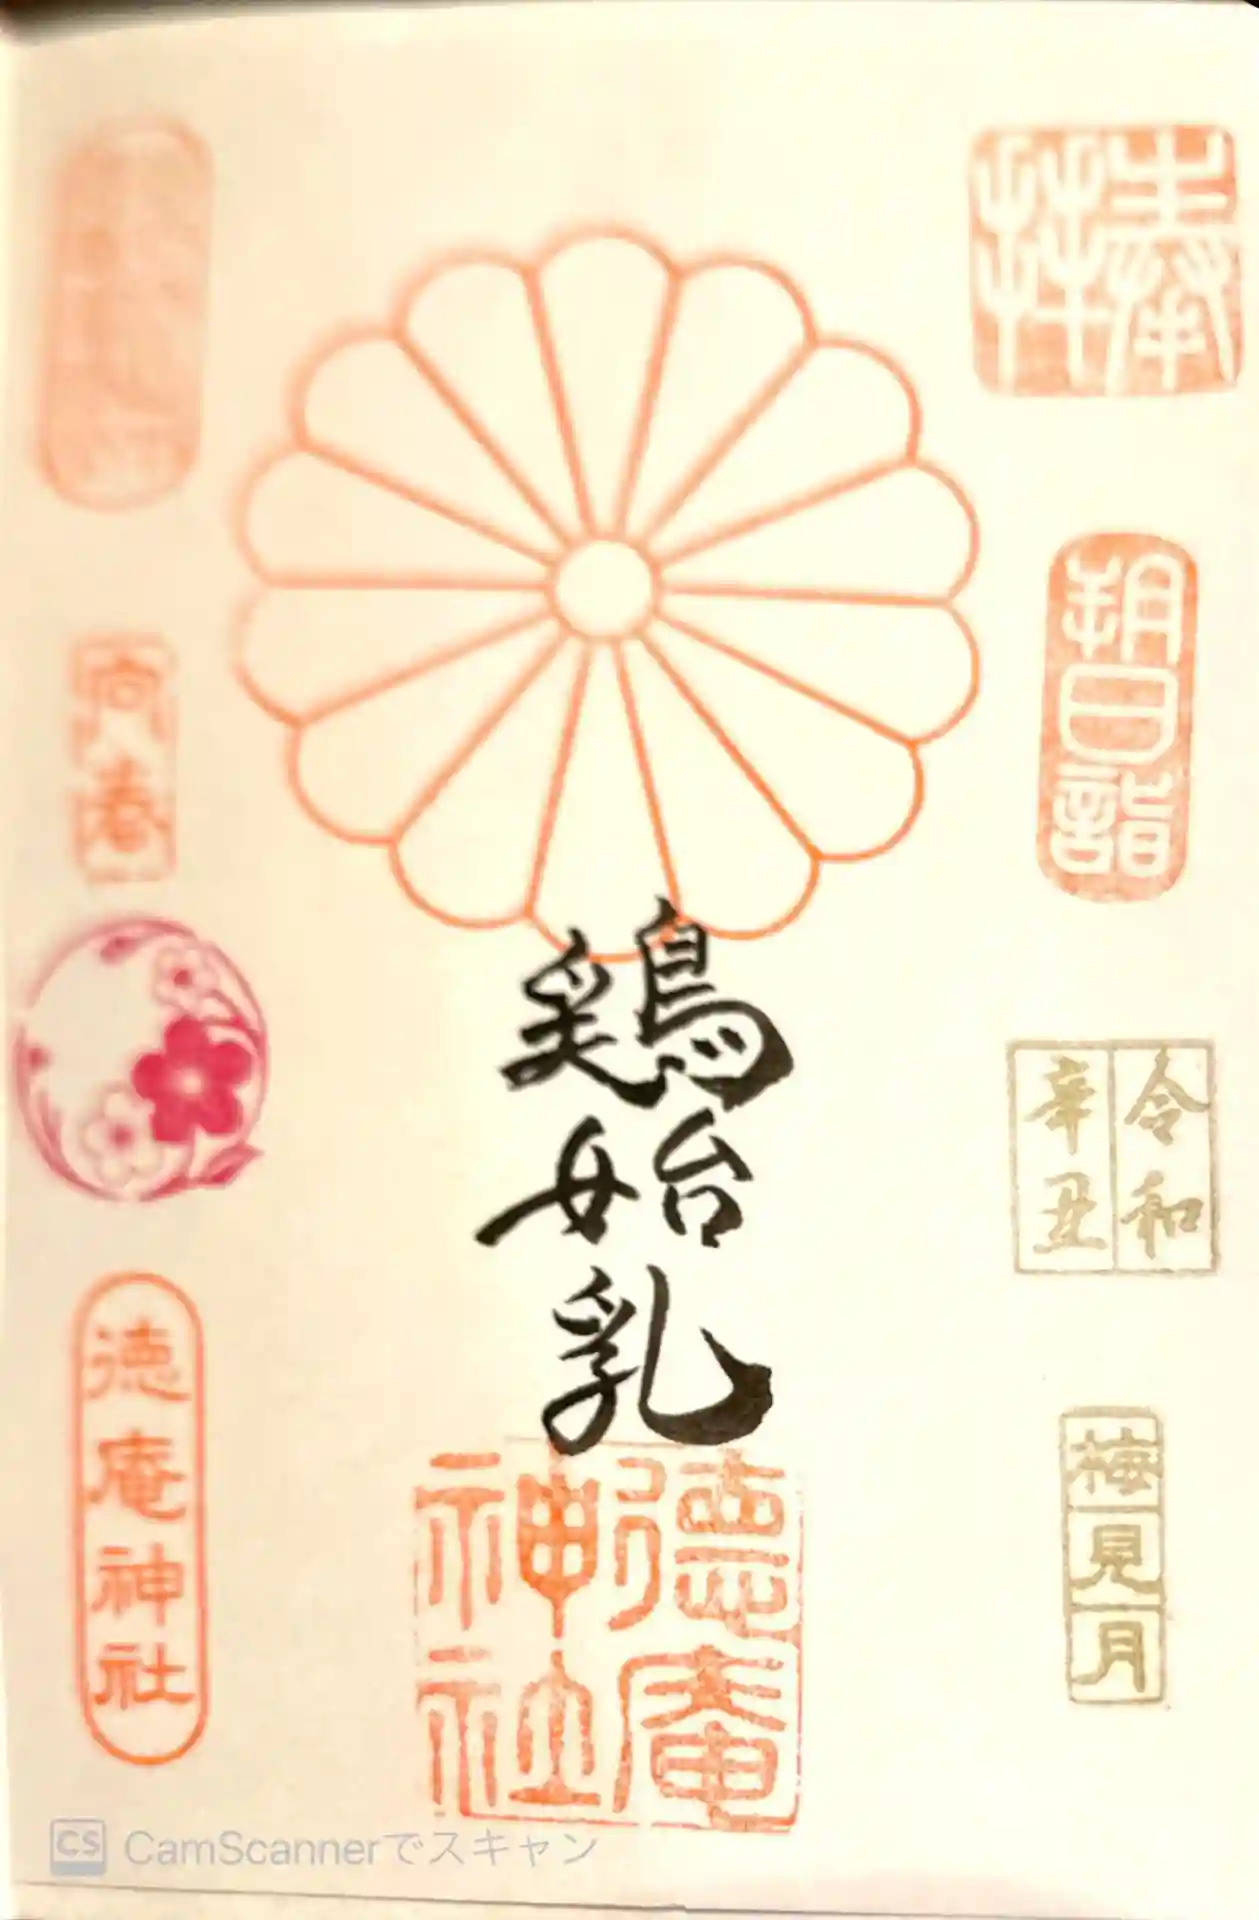 奉拝
朔日詣
令和
辛丑
梅見月
鶏始乳
徳庵
神社
向春
徳庵神社
CS CamScannerでスキャン